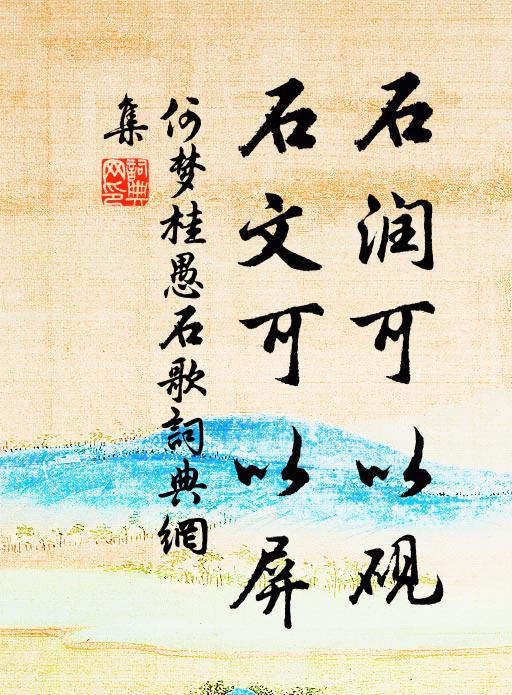 石润可以砚
石文可以屏
何梦桂愚石歌詞典網
集
詞典
网印